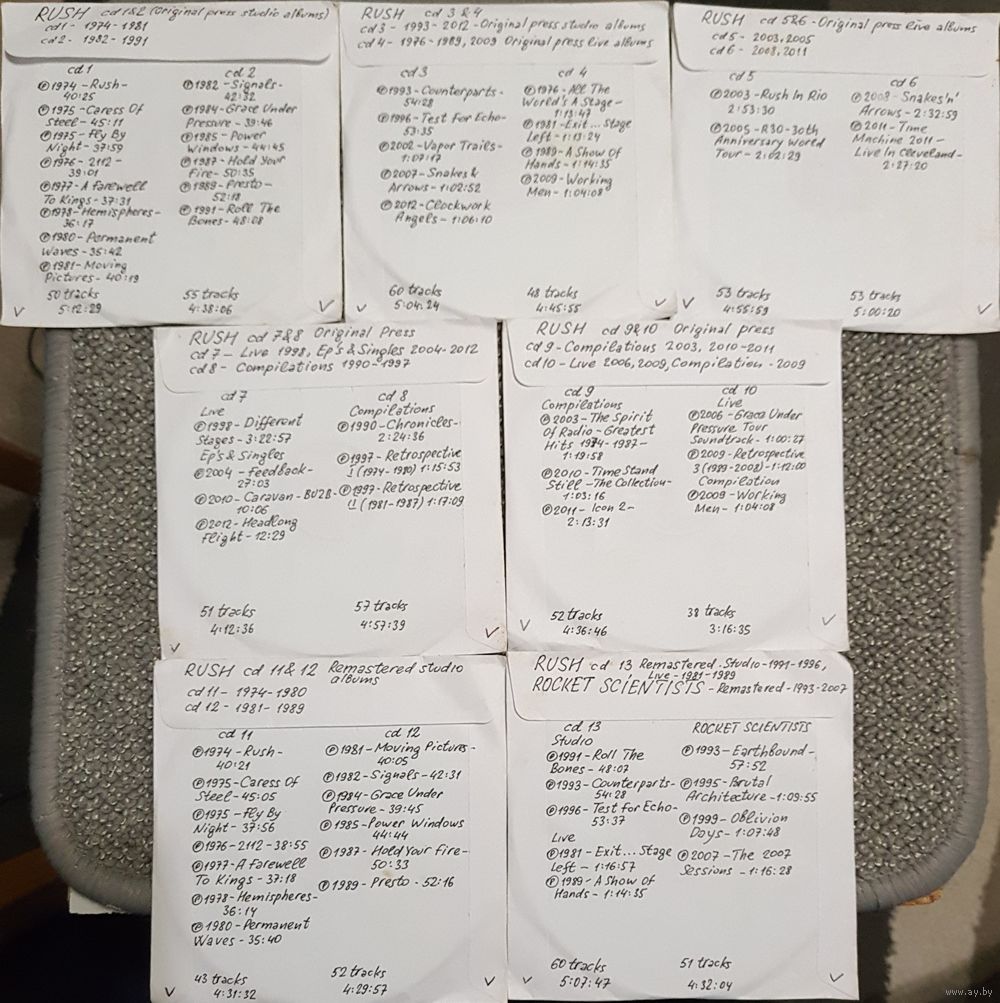 RUSH cd 1&2 (Original press studio albums)
cd 1 - 1974-1981
cd 2 - 1982-1991
cd 1
Ⓟ1974 - Rush -
40:25
Ⓟ1975 - Caress Of
Steel - 45:11
Ⓟ1975 - Fly By
Night - 37:59
Ⓟ1976 - 2112 -
39:01
Ⓟ1977 - A farewell
To Kings - 37:31
Ⓟ1978 - Hemispheres -
36:17
Ⓟ1980 - Permanent
Waves - 35:42
Ⓟ1981 - Moving
Pictures - 40:19
50 tracks
5:12:29
cd 2
Ⓟ1982 - Signals -
42:32
Ⓟ1984 - Grace Under
Pressure - 39:46
Ⓟ1985 - Power
Windows - 44:45
Ⓟ1987 - Hold Your
Fire - 50:35
Ⓟ1989 - Presto -
52:18
Ⓟ1991 - Roll The
Bones - 48:08
55 tracks
4:38:06
RUSH cd 3 & 4
cd 3 - 1993-2012 - Original press studio albums
cd 4 - 1976-1989, 2009 Original press live albums
cd 3
Ⓟ1993 - Counterparts -
54:28
Ⓟ1996 - Test For Echo -
53:35
Ⓟ2002 - Vapor Trails -
1:07:17
Ⓟ2007 - Snakes &
Arrows - 1:02:52
Ⓟ2012 - Clockwork
Angels - 1:06:10
60 tracks
5:04:24
cd 4
Ⓟ1976 - All The
World's A Stage -
1:13:47
Ⓟ1981 - Exit...Stage
Left - 1:13:24
Ⓟ1989 - A Show Of
Hands - 1:14:35
Ⓟ2009 - Working
Men - 1:04:08
48 tracks
4:45:55
RUSH cd 5&6 - Original press live albums
cd 5 - 2003, 2005
cd 6 - 2008, 2011
cd 5
Ⓟ2003 - Rush In Rio
2:53:30
Ⓟ2005 - R30 - 30th
Anniversary World
Tour - 2:02:29
53 tracks
4:55:59
cd 6
Ⓟ2008 - Snakes'n'
Arrows - 2:32:59
Ⓟ2011 - Time
Machine 2011 -
Live In Cleveland -
2:27:20
53 tracks
5:00:20
RUSH cd 7&8 Original Press
cd 7 - Live 1998, Ep's & Singles 2004-2012
cd 8 - Compilations 1990-1997
cd 7
Live
Ⓟ1998 - Different
Stages - 3:22:57
Ep's & Singles
Ⓟ2004 - Feedback -
27:03
Ⓟ2010 - Caravan - BU2B -
10:06
Ⓟ2012 - Headlong
Flight - 12:29
51 tracks
4:12:36
cd 8
Compilations
Ⓟ1990 - Chronicles -
2:24:36
Ⓟ1997 - Retrospective
I (1974-1980) 1:15:53
Ⓟ1997 - Retrospective
II (1981-1987) 1:17:09
57 tracks
4:57:39
RUSH cd 9&10 Original press
cd 9 - Compilations 2003, 2010-2011
cd 10 - Live 2006, 2009, Compilation - 2009
cd 9
Compilations
Ⓟ2003 - The Spirit
Of Radio - Greatest
Hits 1974-1987 -
1:19:58
Ⓟ2010 - Time Stand
Still - The Collection -
1:03:16
Ⓟ2011 - Icon 2 -
2:13:31
52 tracks
4:36:46
cd 10
Live
Ⓟ2006 - Grace Under
Pressure Tour
Soundtrack - 1:00:27
Ⓟ2009 - Retrospective
3 (1989-2008) - 1:12:00
Compilation
Ⓟ2009 - Working
Men - 1:04:08
38 tracks
3:16:35
RUSH cd 11 & 12 Remastered studio
albums
cd 11 - 1974-1980
cd 12 - 1981-1989
cd 11
Ⓟ1974 - Rush -
40:21
Ⓟ1975 - Caress Of
Steel - 45:05
Ⓟ1975 - Fly By
Night - 37:56
Ⓟ1976 - 2112 - 38:55
Ⓟ1977 - A Farewell
To Kings - 37:18
Ⓟ1978 - Hemispheres -
36:14
Ⓟ1980 - Permanent
Waves - 35:40
43 tracks
4:31:32
cd 12
Ⓟ1981 - Moving Pictures -
40:05
Ⓟ1982 - Signals - 42:31
Ⓟ1984 - Grace Under
Pressure - 39:45
Ⓟ1985 - Power Windows
44:44
Ⓟ1987 - Hold Your Fire -
50:33
Ⓟ1989 - Presto - 52:16
52 tracks
4:29:57
RUSH cd 13 Remastered. Studio - 1991-1996,
Live - 1981-1989
ROCKET SCIENTISTS - Remastered - 1993-2007
cd 13
Studio
Ⓟ1991 - Roll The
Bones - 48:07
Ⓟ1993 - Counterparts -
54:28
Ⓟ1996 - Test for Echo -
53:37
Live
Ⓟ1981 - Exit...Stage
Left - 1:16:57
Ⓟ1989 - A Show Of
Hands - 1:14:35
60 tracks
5:07:47
ROCKET SCIENTISTS
Ⓟ1993 - Earthbound -
57:52
Ⓟ1995 - Brutal
Architecture - 1:09:55
Ⓟ1999 - Oblivion
Days - 1:07:48
Ⓟ2007 - The 2007
Sessions - 1:16:28
51 tracks
4:32:04
www.ay.by